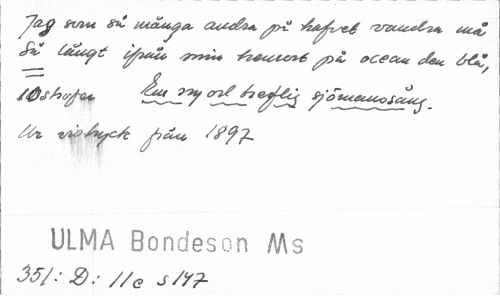 Jag som så många andra på hafvet vandra må
Så långt ifrån min hemort på ocean den blå,
10 strofer En ny och treflig sjömanssång.
Ur vistryck från 1897
ULMA Bondeson Ms
351: D: 11c s 147